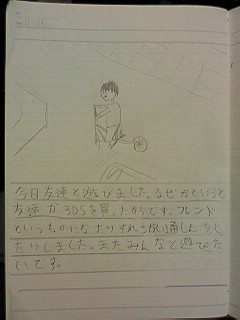 今日友達と遊びました。なぜかというと
友達が3DSを買ったからです。フレンド
というものになったりすれちがい通しんをし
たりしました。またみんなと遊びた
いです。